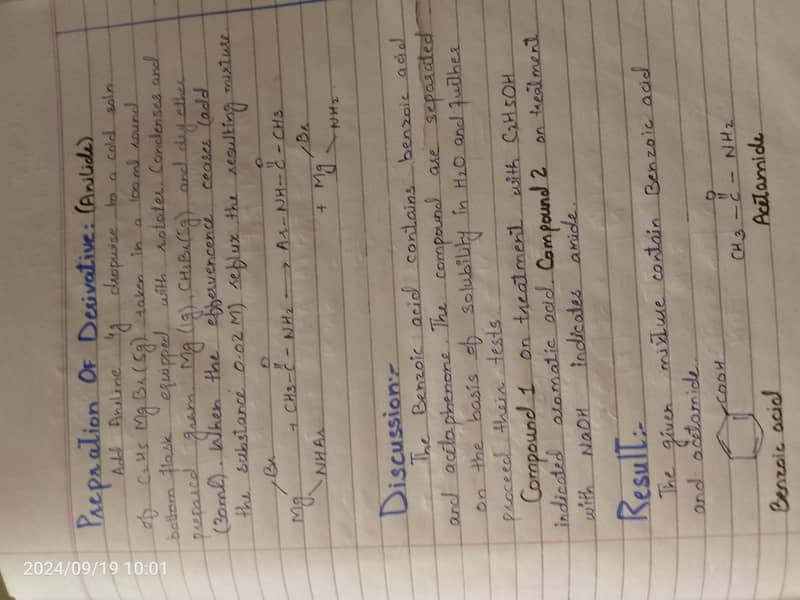 Prepration Of Derivative: (Anilide)
Add Aniline 4g dropwise to a cold soln
of C2H5 Mg Br (5g) taken in a 100ml round
bottom flask equipped with rotater Condenses and
prepared gram Mg (1g), CH3Br(5g) and dry ether
(30ml). When the effervencence ceases (add
the substance 0.02 M) reflux the resulting mixture
Mg Br NHAr + CH3-C-NH2 → Ar-NH-C-CH3
O O
+ Mg Br NH2
Discussion:-
The Benzoic acid contains benzoic acid
and acetaphenone. The compound are separated
on the basis of solubility in H2O and further
proceed their tests.
Compound 1 on treatment with C2H5OH
indicated aromatic acid. Compound 2 on treatment
with NaOH indicates amide.
Result:-
The given mixture contain Benzoic acid
and acetamide.
COOH
O
CH3-C-NH2
Benzoic acid
Acetamide
2024/09/19 10:01